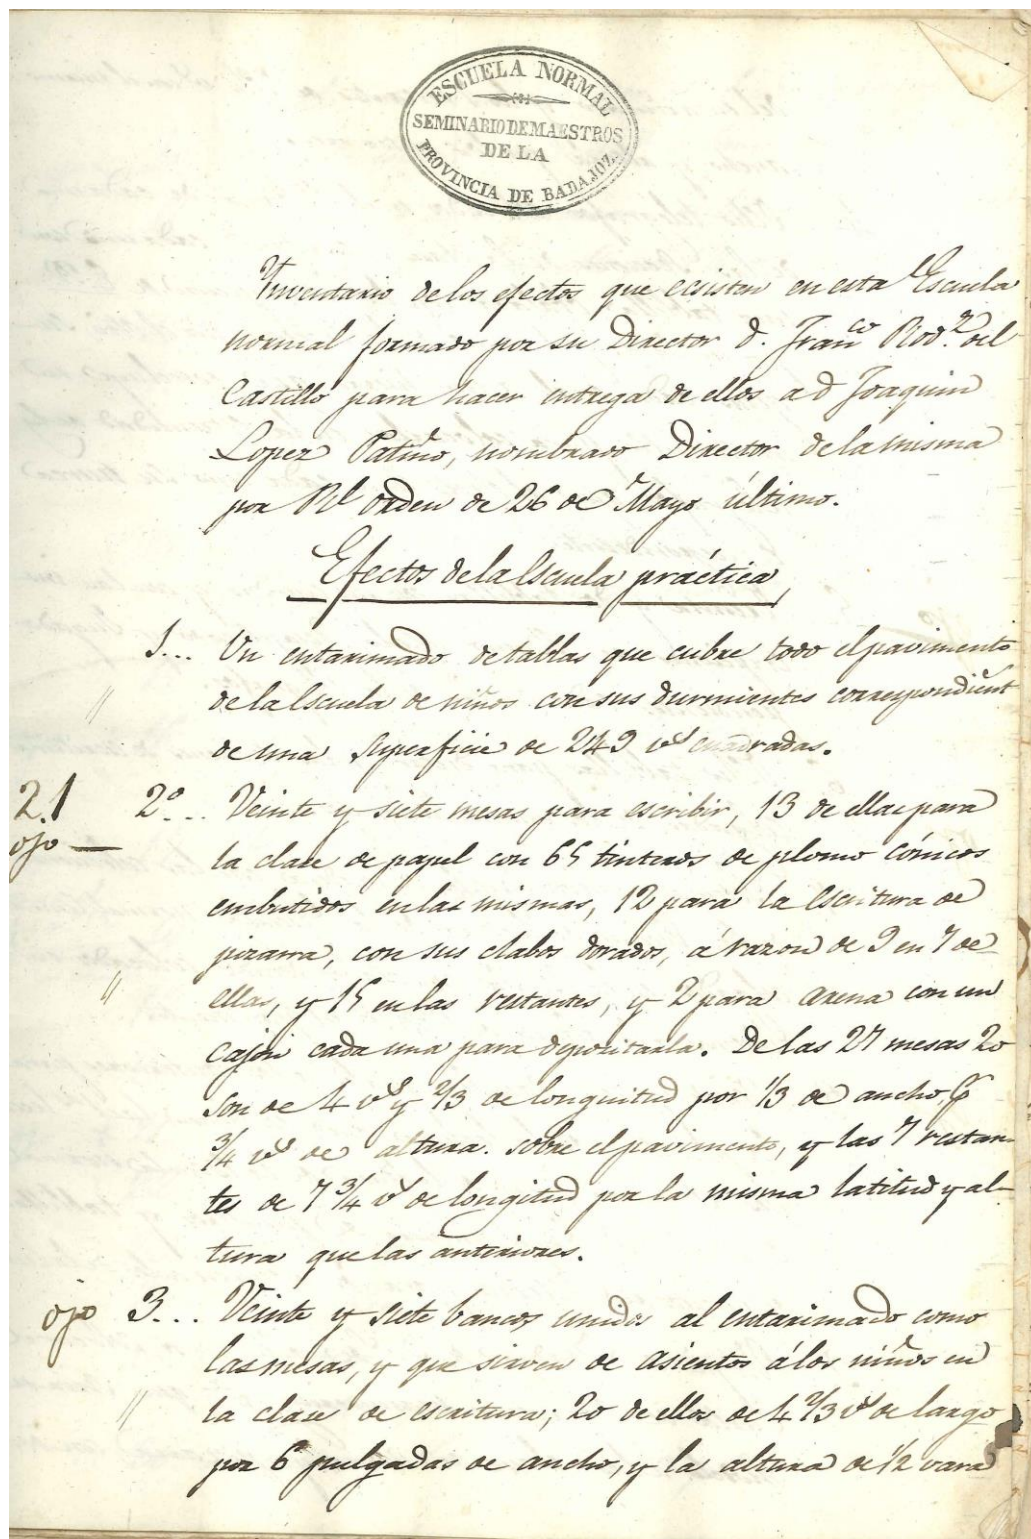 ESCUELA NORMAL
SEMINARIO DE MAESTROS
DE LA
PROVINCIA DE BADAJOZ
Ynventario de los efectos que ecsisten en esta Escuela
normal formado por su Director d. Franco Rodz del
Castillo para hacer entrega de ellos a d Joaquin
Lopez Patiño, nombrado Director de la misma
por Rl orden de 26 de Mayo último.
Efectos de la Escuela práctica
1... Un entarimado de tablas que cubre todo el pavimento
de la Escuela de niños con sus durmientes correspondient
" de una superficie de 249 vs cuadradas.
21 2º... Veinte y siete mesas para escribir, 13 de ellas para
ojo — la clase de papel con 65 tinteros de plomo cónicos
embutidos en las mismas, 12 para la escritura de
pizarra, con sus clabos dorados, á razon de 9 en 7 de
" ellas, y 15 en las restantes, y 2 para arena con un
cajon cada una para depositarla. De las 27 mesas 20
son de 4 vs y 2/3 de longuitud por 1/3 de ancho, y
3/4 vs de altura sobre el pavimento, y las 7 restan-
tes de 7 3/4 vs de longitud por la misma latitud y al-
tura que las anteriores.
ojo 3... Veinte y siete bancos unidos al entarimado como
las mesas, y que sirven de asientos á los niños en
" la clase de escritura; 20 de ellos de 4 2/3 vs de largo
por 6 pulgadas de ancho, y la altura de 1/2 vara